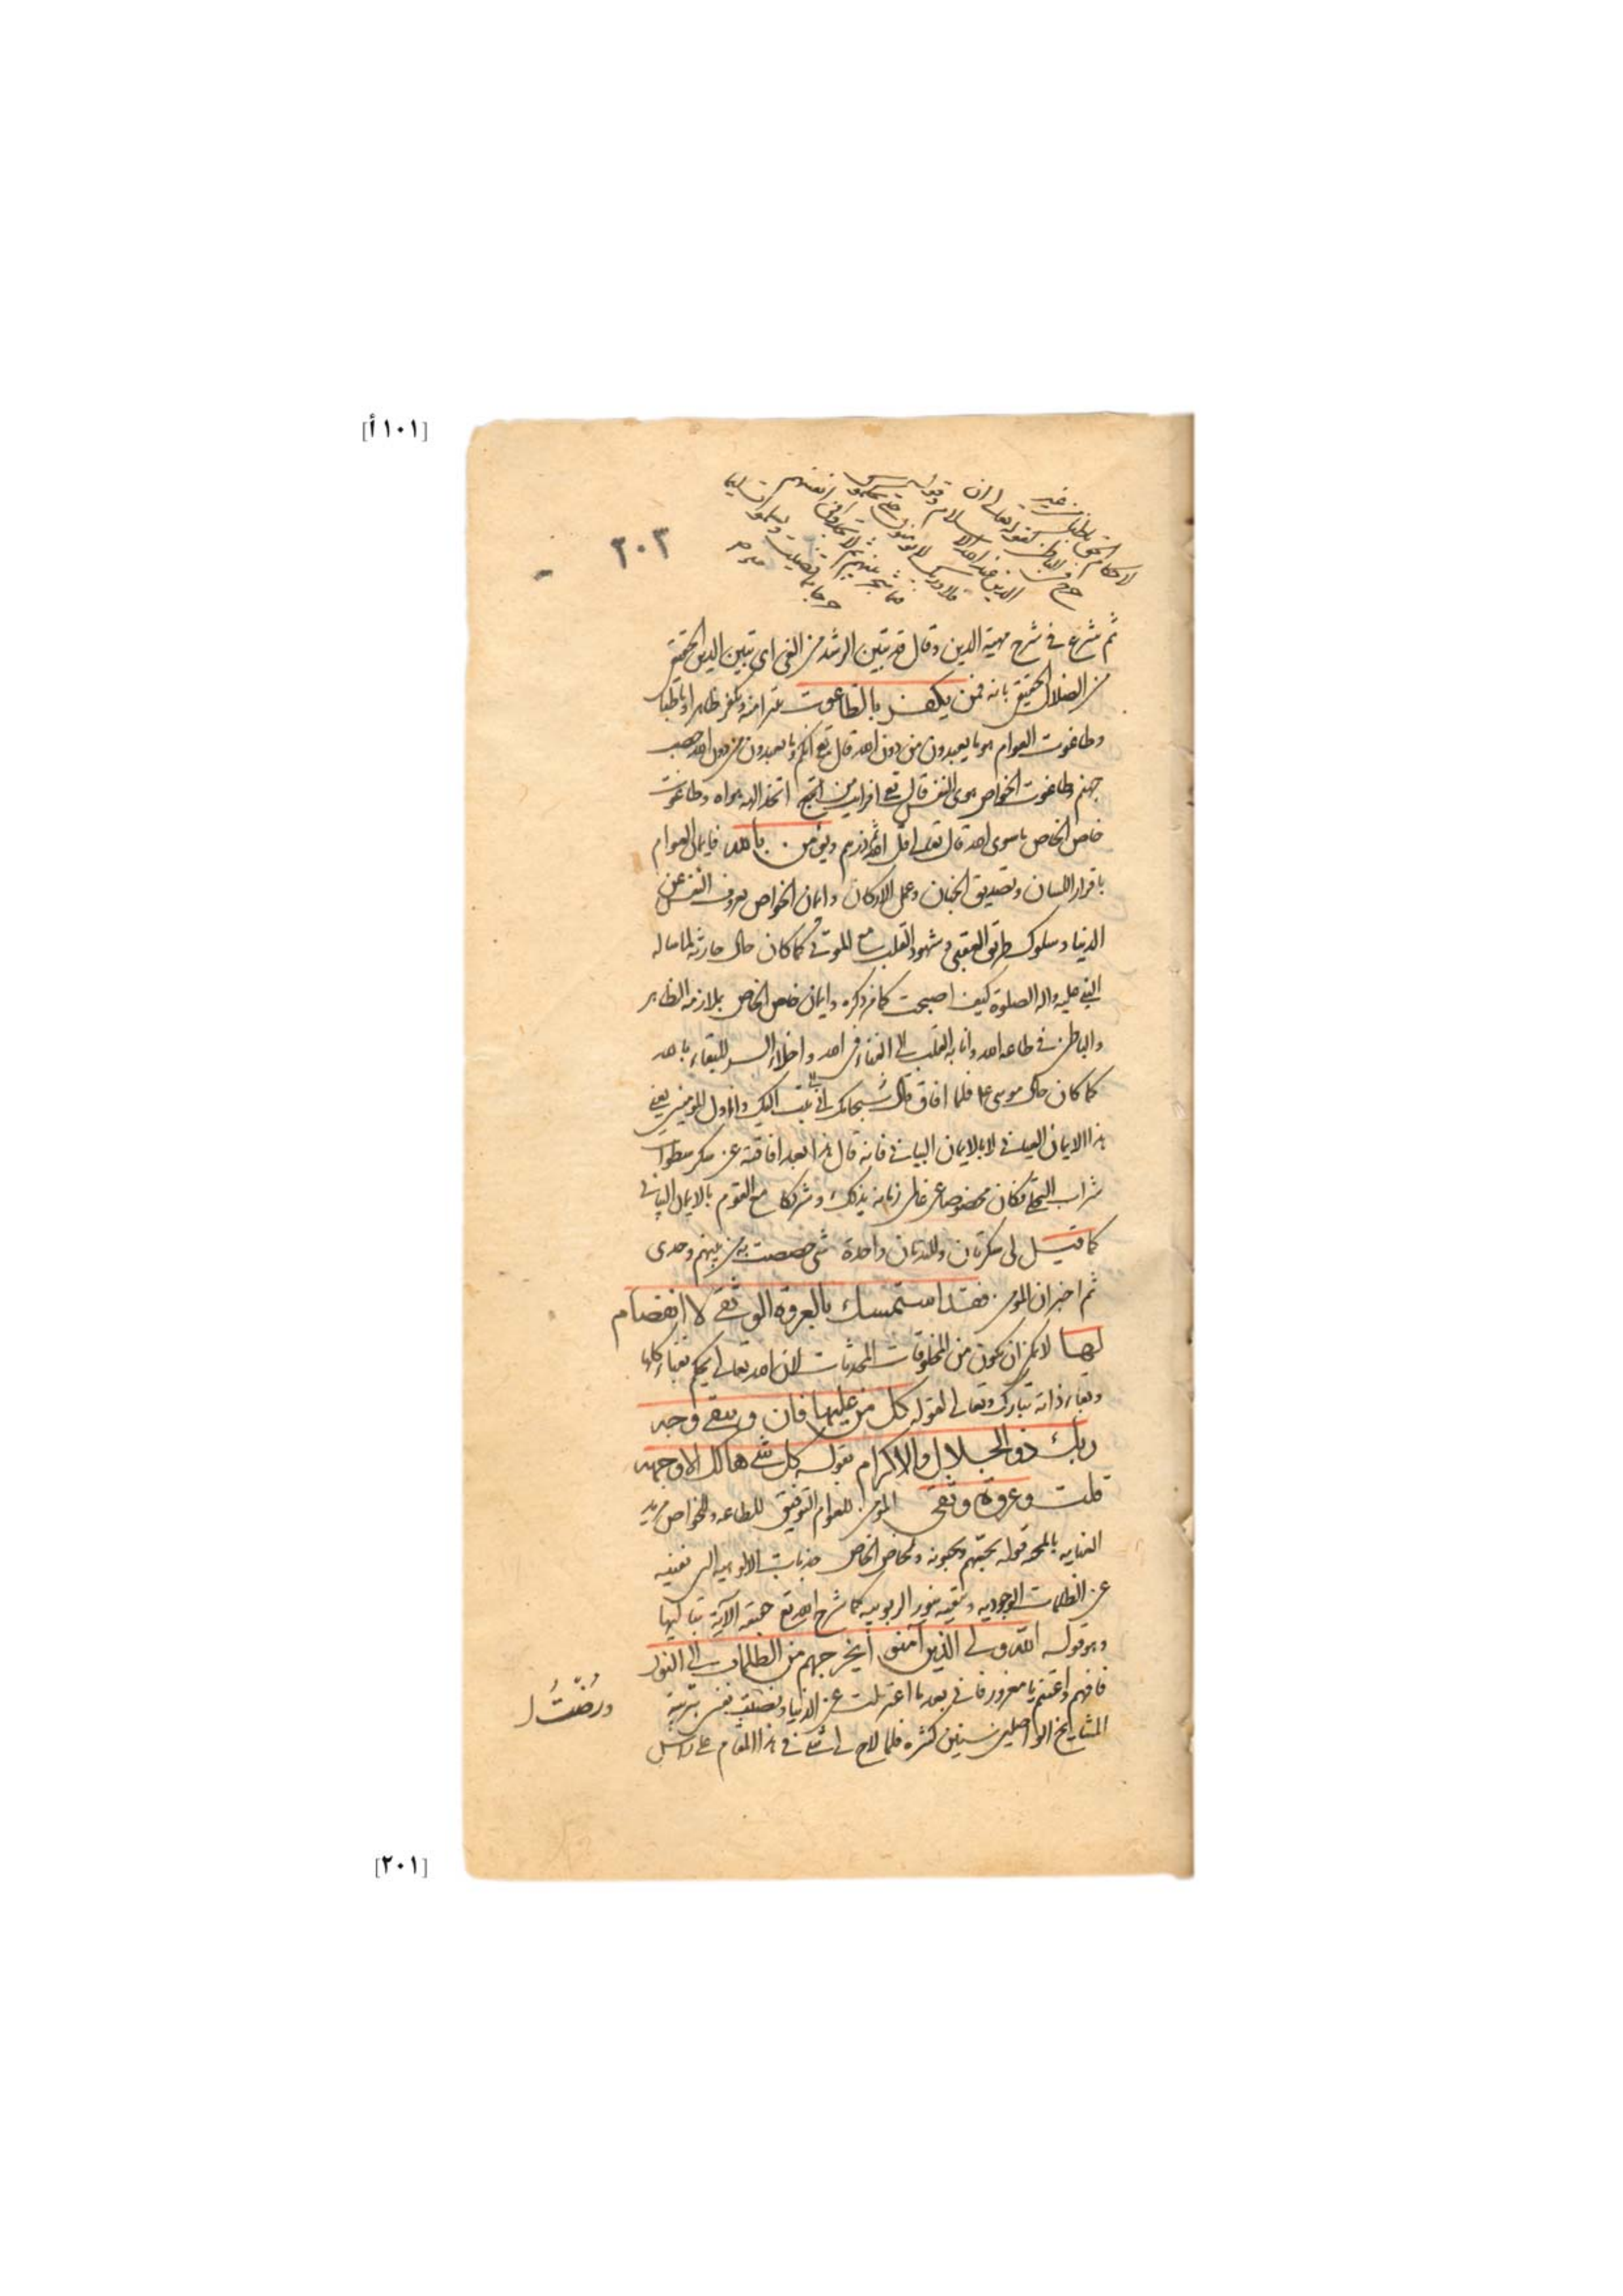 [١٠١أ]
٢٠٣
لاحكام الحق باطنا من غير
حرج في الباطن كقوله تعالى ان
الدين عند الله الاسلام وقوله
فلا وربك لا يؤمنون حتى يحكموك
فيما شجر بينهم ثم لا يجدوا في انفسهم
حرجا مما قضيت ويسلموا تسليما
ثم شرع في شرح مهية الدين وقال قد تبين الرشد من الغي اي تبين الدين الحقيقي
من الضلال الحقيقي بانه فمن يكفر بالطاغوت يتبرأ منه ويكفر ظاهرا وباطنا
وطاغوت العوام هو ما يعبدون من دون الله قال تع انكم وما تعبدون من دون الله حصب
جهنم وطاغوت الخواص هوى النفس قال تع افرايت من اتخذ الهه هواه وطاغوت
خاص الخاص ما سوى الله قال تعالى قل الله ثم ذرهم ويؤمن بالله فايمان العوام
باقرار اللسان وتصديق الجنان وعمل الاركان وايمان الخواص عزوف النفس عن
الدنيا وسلوك طريق العقبى وشهود القلب مع المولى كما كان حال حارثة لما ساله
النبي عليه واله الصلوة كيف اصبحت كما مر ذكره وايمان خاص الخاص ملازمة الظاهر
والباطن في طاعة الله وانابة القلب الى الفناء في الله واخلاء السر للبقاء بالله
كما كان حال موسى ع فلما افاق قال سبحانك اني تبت اليك وانا اول المؤمنين يعني
هذا الايمان العياني لا بالايمان البياني فانه قال هذا بعد افاقته عن سكر سطوات
شراب التجلي فكان مخصوصا عن خاص زمانه بذلك وشريكا مع القوم بالايمان البياني
كما قيل لي سكرتان وللندمان واحدة شي خصصت به من بينهم وحدي
ثم اخبر ان المؤمن فقد استمسك بالعروة الوثقى لا انفصام
لها لا يمكن ان تكون من المخلوقات المحدثات لان الله تعالى يحكم بفناء كلها
وبقاء ذاته تبارك وتعالى لقوله كل من عليها فان ويبقى وجه
ربك ذو الجلال والاكرام بقوله كل شئ هالك الا وجهه
قلت وعروة وثقى المؤمن للعوام التوفيق للطاعة وللخواص مزيد
العناية بالمحبة قوله يحبهم ويحبونه ولخاص الخاص جذبات الالوهية التي تفنيه
عن الظلمات الوجودية وتبقيه بنور الربوبية كما شرح الله تع حقيقة الاية بتاليها
وهو قوله الله ولي الذين آمنوا يخرجهم من الظلمات الى النور
فافهم واغتنم يا مغرور فاني بعد ما اعتزلت عن الدنيا ونصبت نفسي بتربية
المشايخ الواصلين سنين كثيرة فلما لاح لي شئ في هذا المقام على راسل
ورضتُ
[٢٠١]